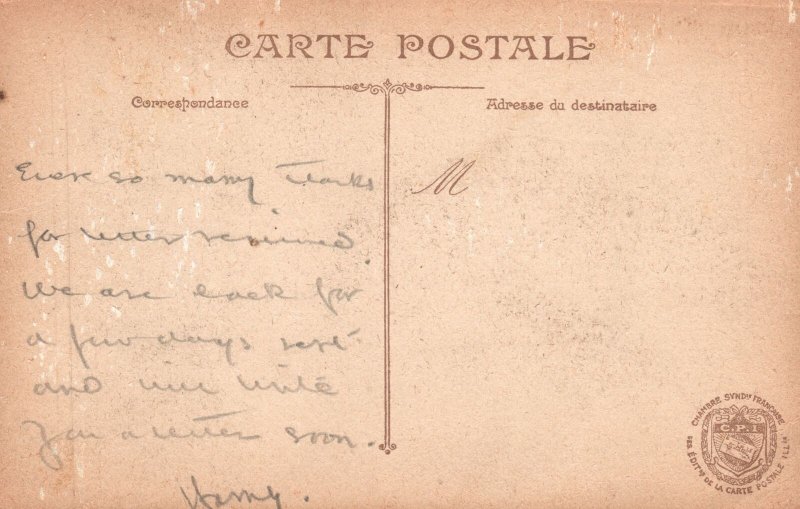 CARTE POSTALE
Correspondance
Adresse du destinataire
Ever so many thanks
for letter received.
We are back for
a few days rest
and will write
you a letter soon.
Harry.
M
CHAMBRE SYND<sup>le</sup> FRANÇAISE
C.P.I
DES ÉDIT<sup>rs</sup> DE LA CARTE POSTALE ILL<sup>ée</sup>